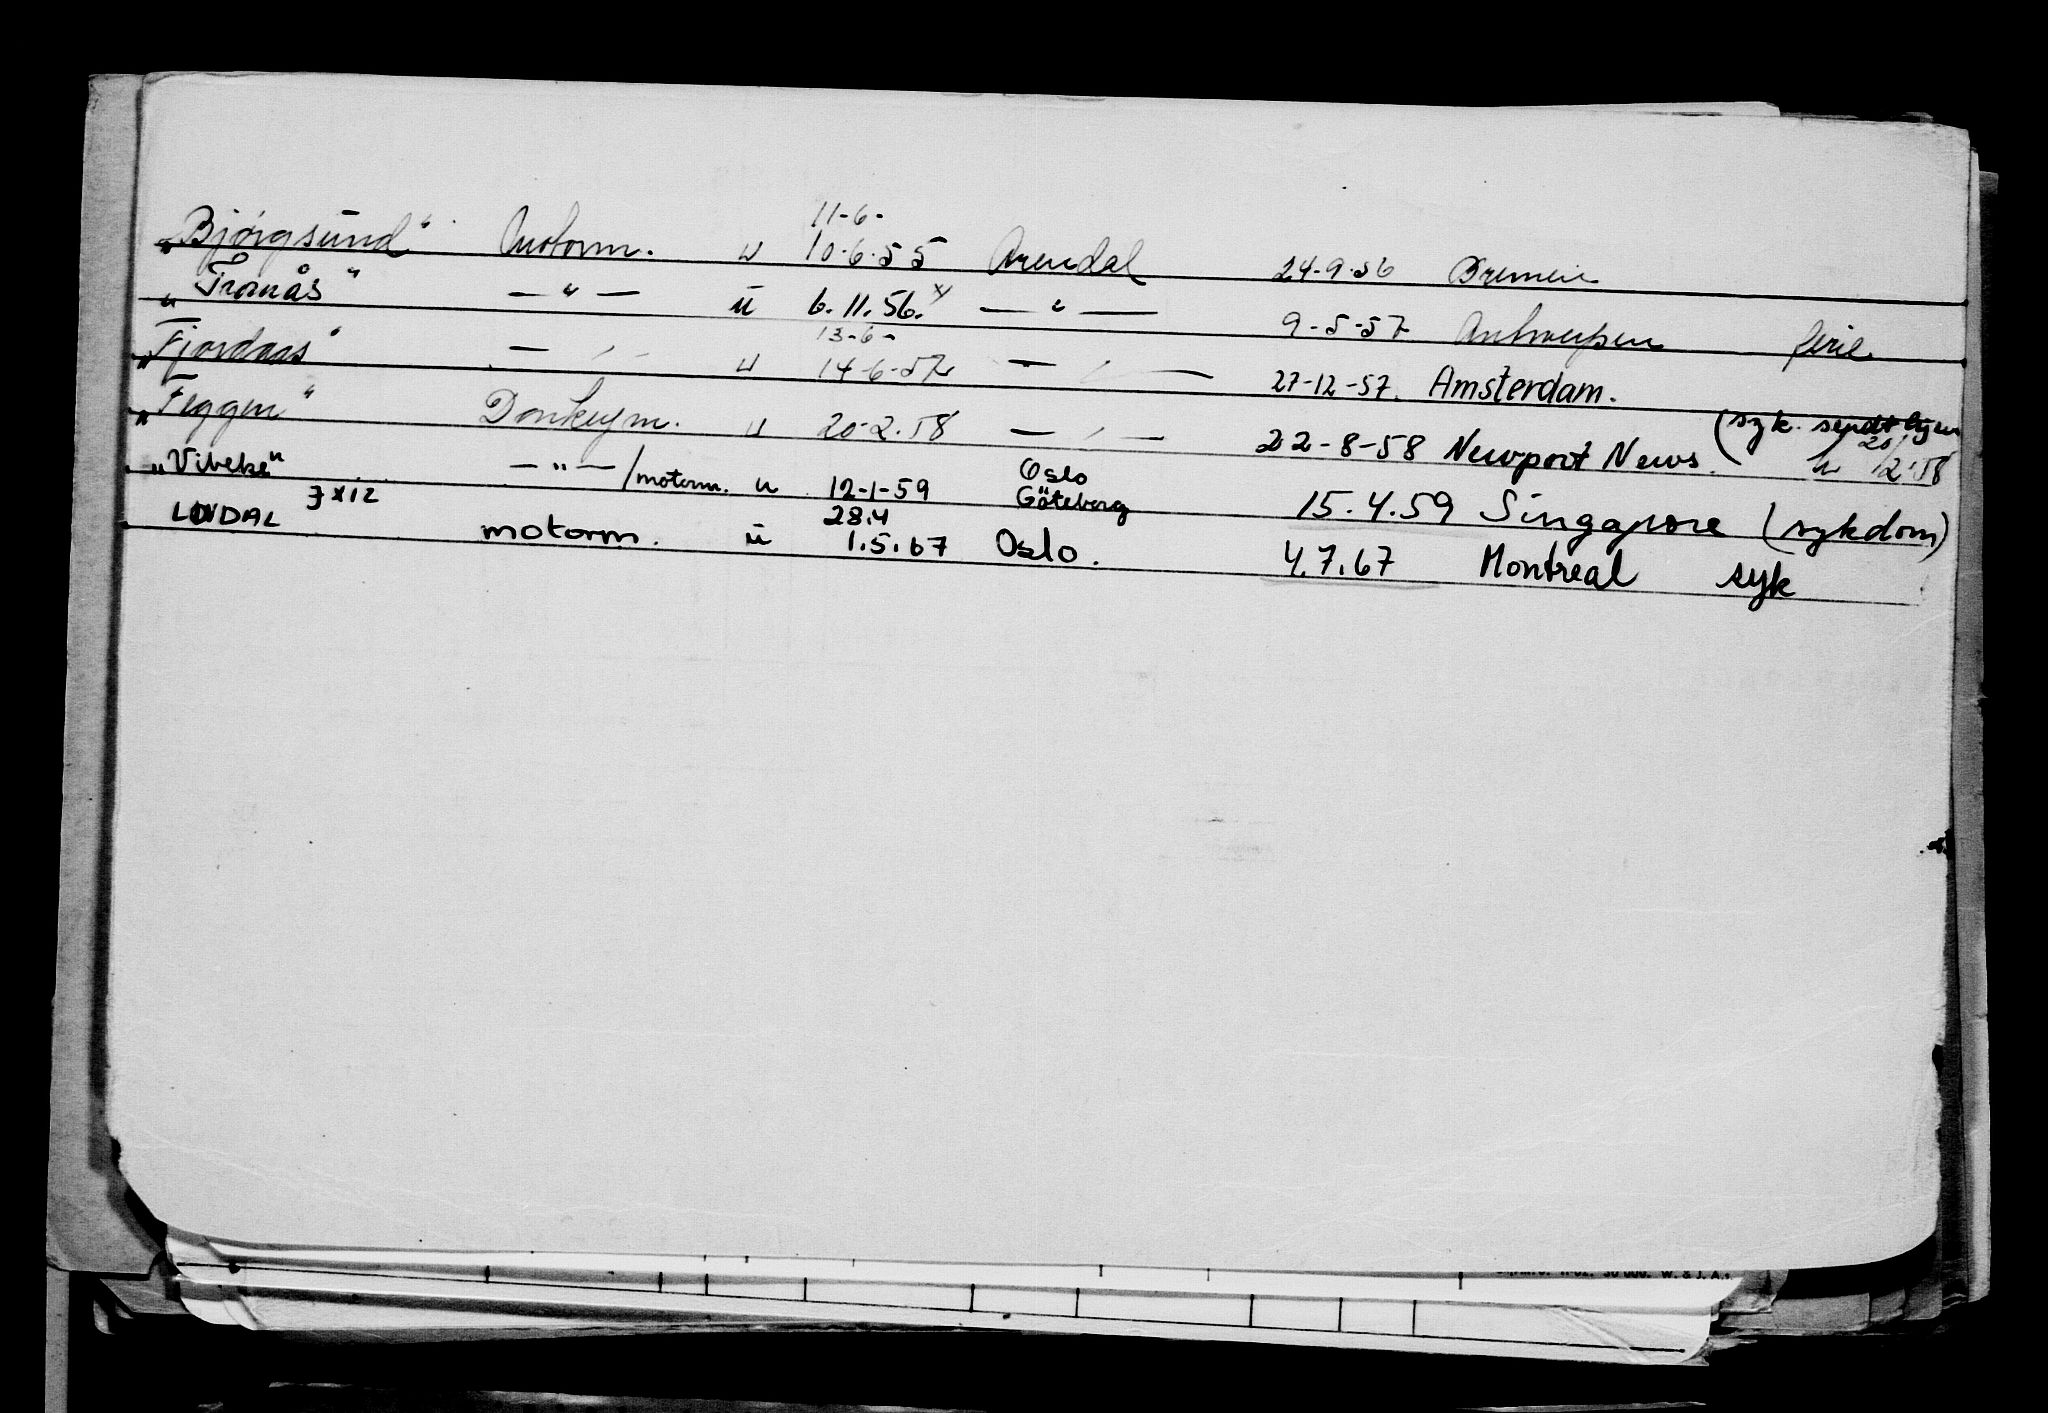 11-6-
„Bjørgsund" Motorm. u 10-6-55 Arendal 24-9-56 Bremen
„Tromås" — " — u 6.11.56. x/ — " — 9-5-57 Antwerpen ferie
13-6-
„Fjordaas" — " — u 14-6-57 — " — 27-12-57. Amsterdam.
„Feggen" Donkeym. u 20-2-58 — " — 22-8-58 Newport News. (syk. sendt hjem
20/2-58
„Vibeke" — " — /motorm. u 12-1-59 Oslo Göteborg 15.4.59 Singapore (sykdom)
28.4
LINDAL motorm. u 1.5.67 Oslo. 4.7.67 Montreal syk